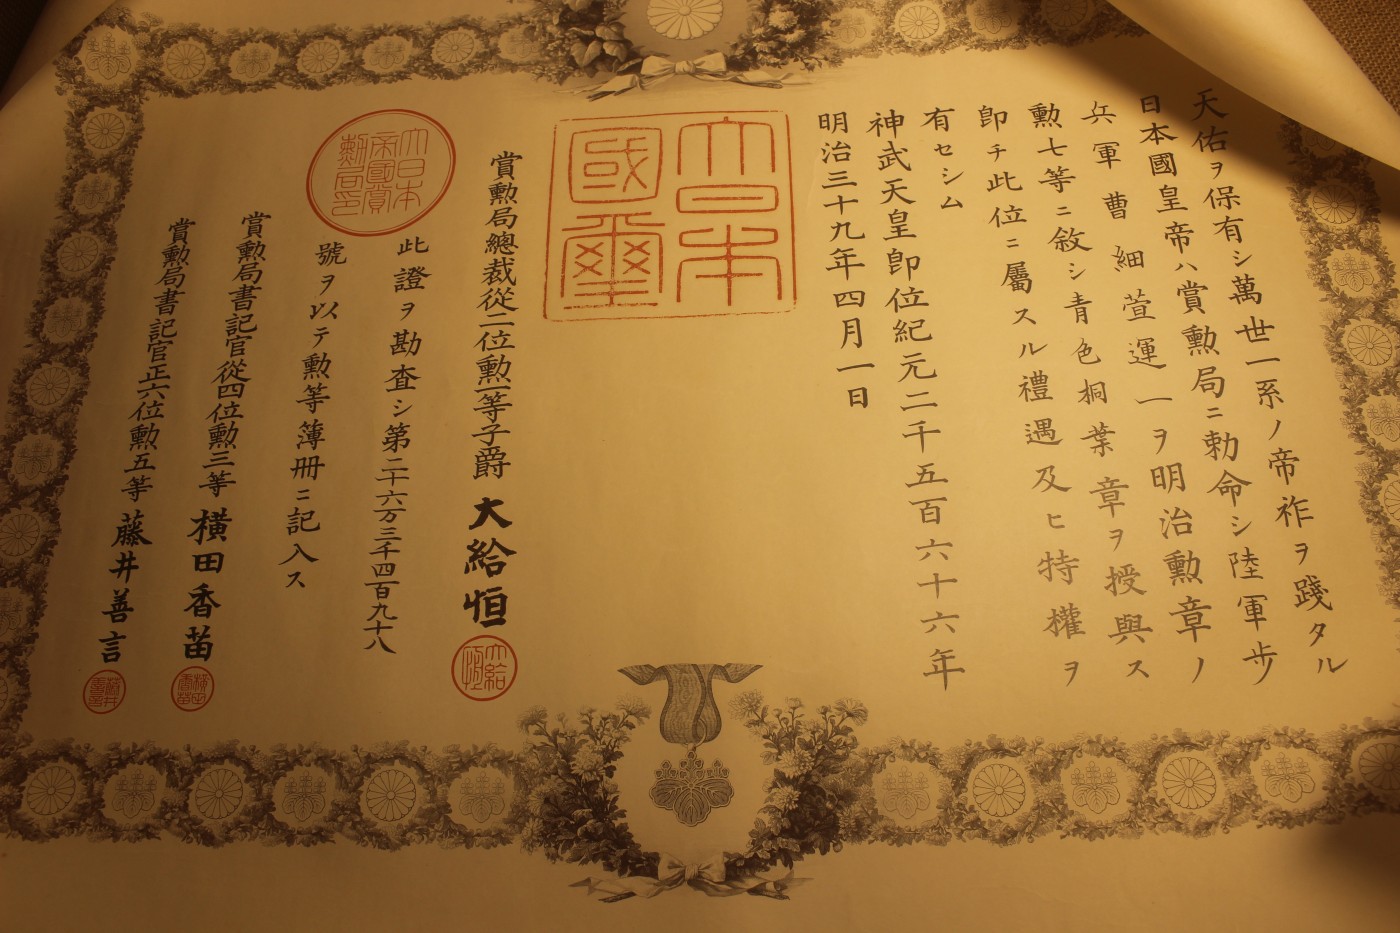 天佑ヲ保有シ萬世一系ノ帝祚ヲ踐タル
日本國皇帝ハ賞勲局ニ勅命シ陸軍歩
兵軍曹細萱運一ヲ明治勲章ノ
勲七等ニ敘シ青色桐葉章ヲ授與ス
卽チ此位ニ屬スル禮遇及ヒ特權ヲ
有セシム
神武天皇卽位紀元二千五百六十六年
明治三十九年四月一日
大日本
國璽
賞勲局總裁從二位勲一等子爵大給恒
大給恒
此證ヲ勘査シ第二十六万三千四百九十八
號ヲ以テ勲等簿冊ニ記入ス
大日本
帝國賞
勲局印
賞勲局書記官從四位勲三等橫田香苗
橫田香苗
賞勲局書記官正六位勲五等藤井善言
藤井善言